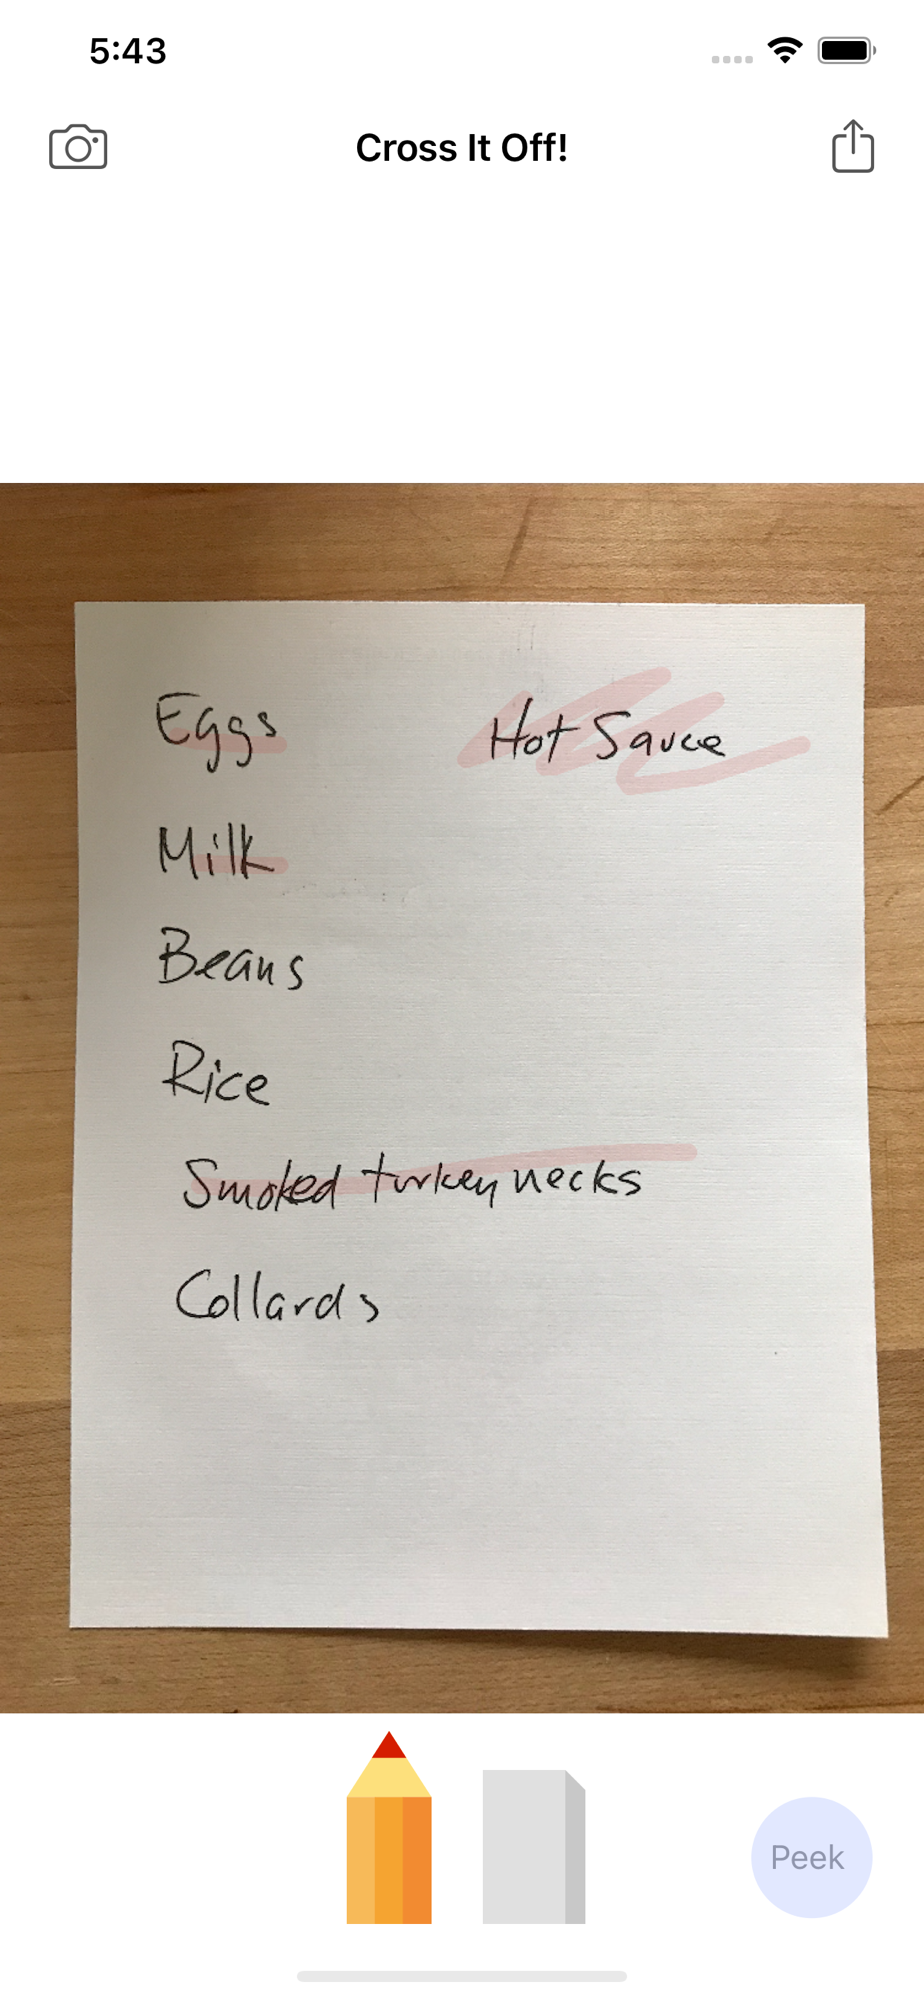 5:43
Cross It Off!
Eggs
Hot Sauce
Milk
Beans
Rice
Smoked turkey necks
Collards
Peek